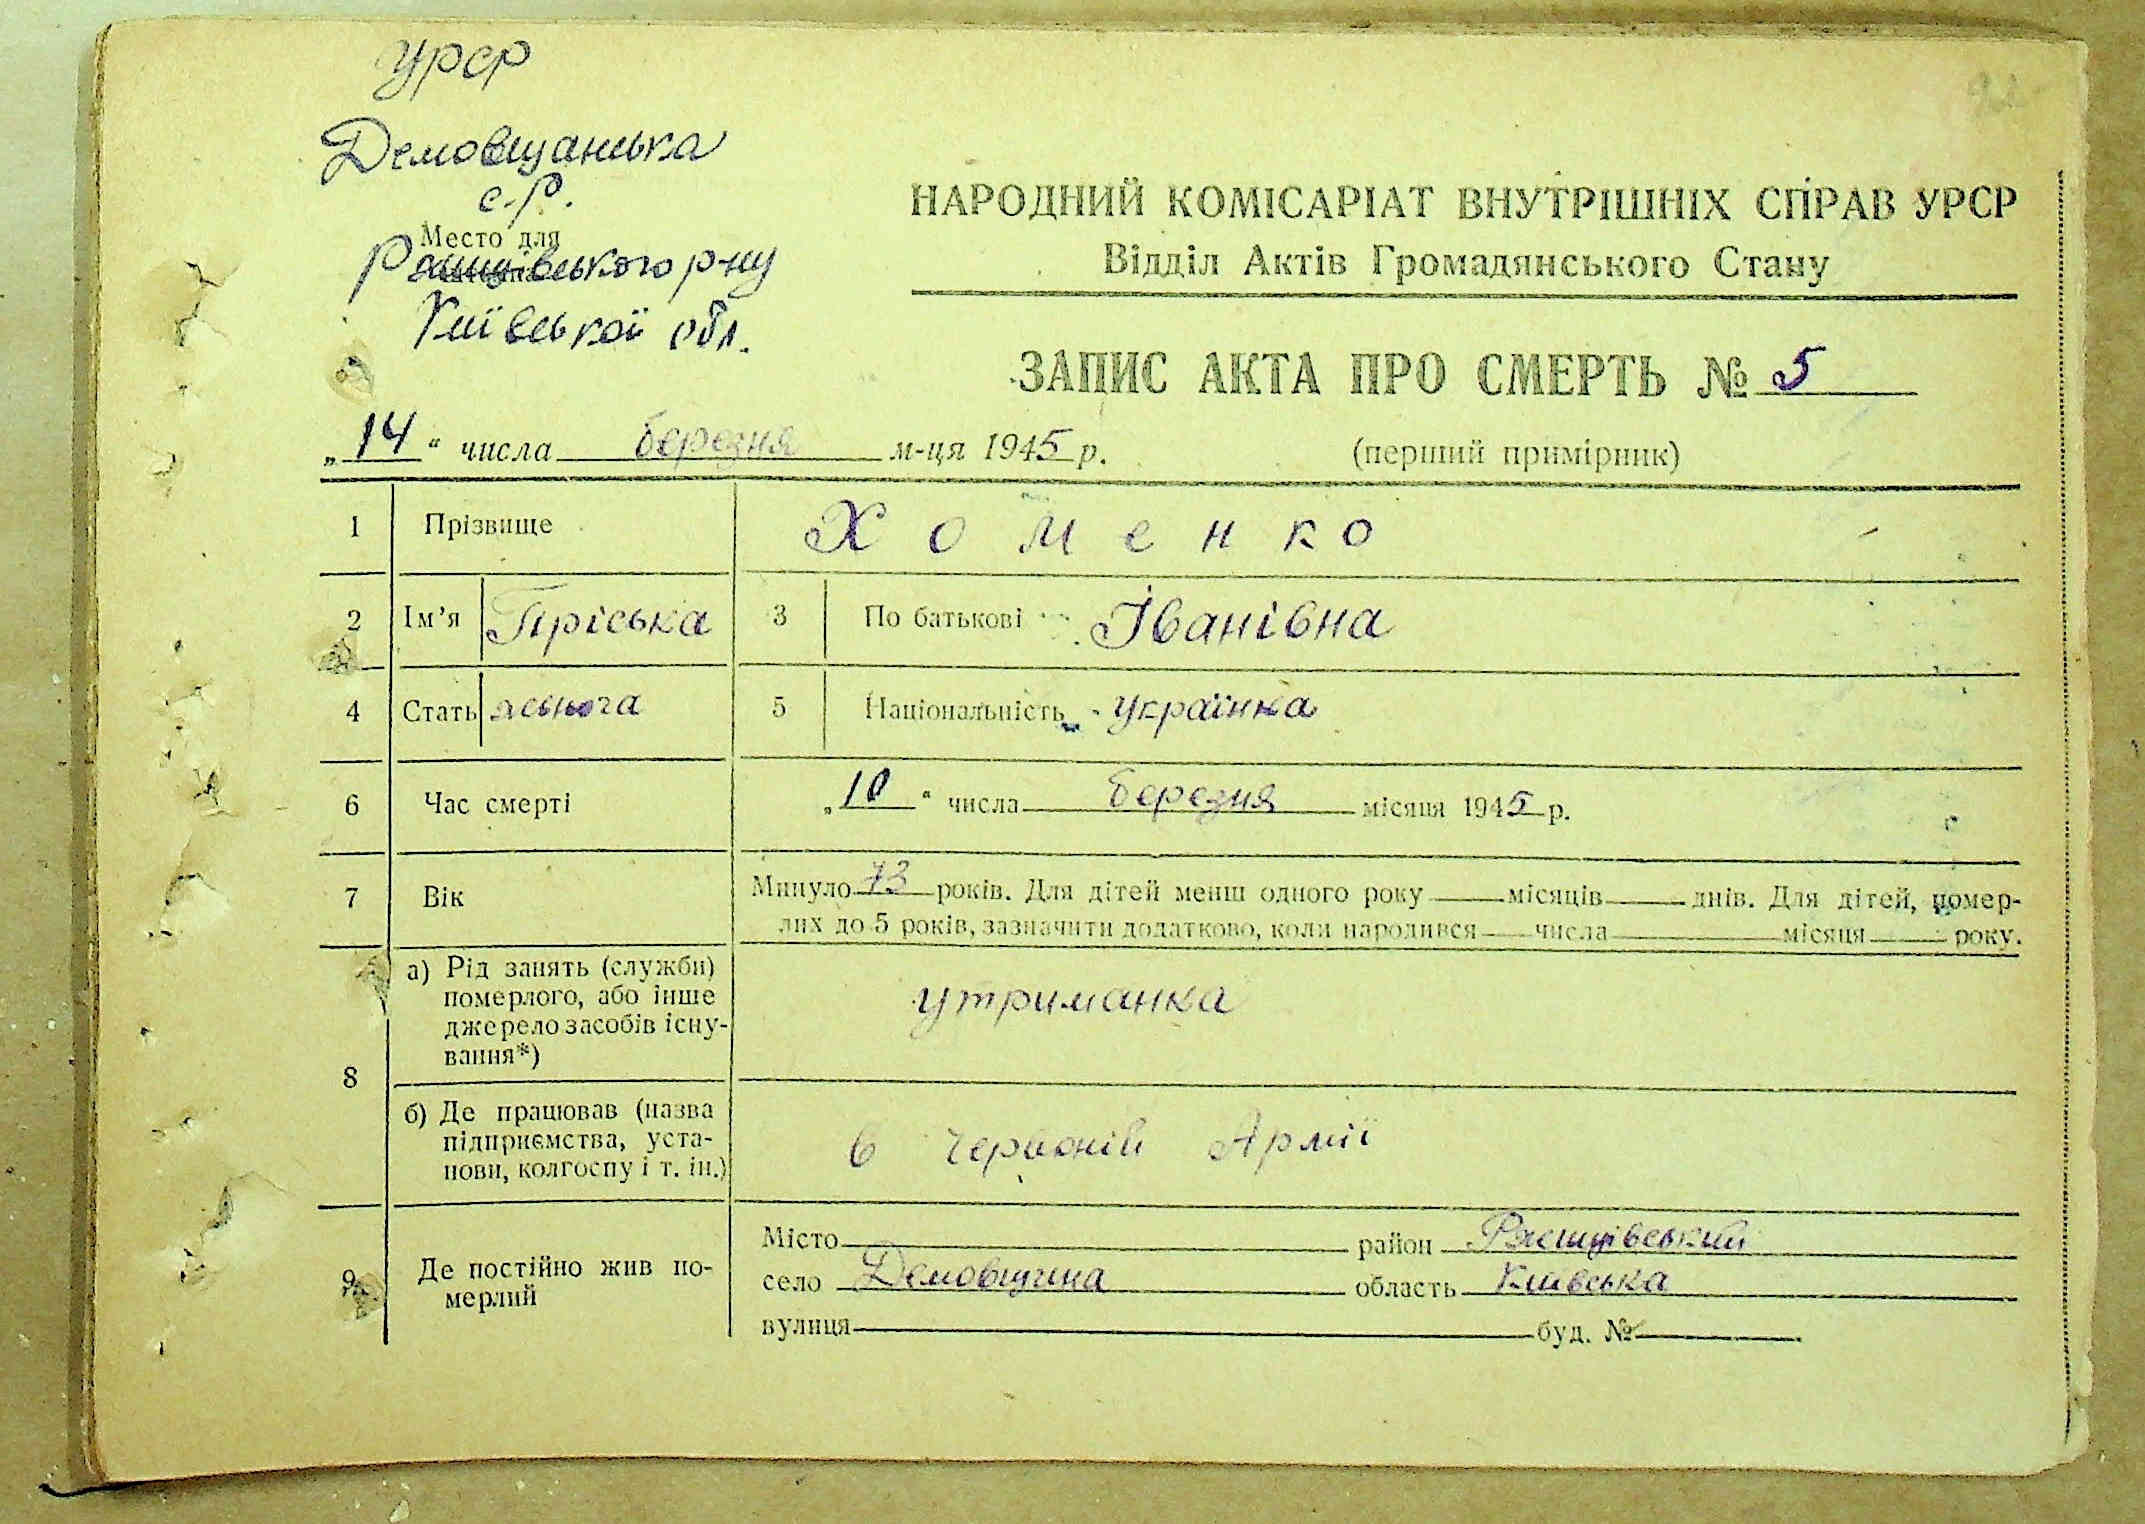 УРСР
Демовщанська
с.р.
Место для
Ржищівського р-ну
Київської обл.
НАРОДНИЙ КОМІСАРІАТ ВНУТРІШНІХ СПРАВ УРСР
Відділ Актів Громадянського Стану
ЗАПИС АКТА ПРО СМЕРТЬ № 5
„14“ числа березня м-ця 1945 р. (перший примірник)
1 Прізвище Хоменко
2 Ім'я Пріська 3 По батькові Іванівна
4 Стать жіноча 5 Національність українка
6 Час смерті „10“ числа березня місяця 1945 р.
7 Вік Минуло 73 років. Для дітей менш одного року місяців днів. Для дітей, помер-
лих до 5 років, зазначити додатково, коли народився числа місяця року.
8 а) Рід занять (служби)
померлого, або інше
джерело засобів існу-
вання*)
утриманка
б) Де працював (назва
підприємства, уста-
нови, колгоспу і т. ін.)
в Червоній Армії
9 Де постійно жив по-
мерлий
Місто район Ржищівський
село Демовщина область Київська
вулиця буд. №